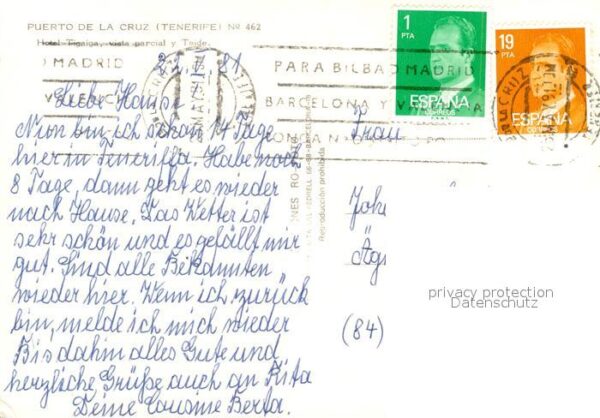 PUERTO DE LA CRUZ (TENERIFE) Nº 462
Hotel Tigaiga, vista parcial y Teide.
22. V. 81
Liebe Hansi
Nun bin ich schon 14 Tage
hier in Teneriffa. Habe noch
8 Tage, dann geht es wieder
nach Hause. Das Wetter ist
sehr schön und es gefällt mir
gut. Sind alle Bekannten
wieder hier. Wenn ich zurück
bin, melde ich mich wieder
Bis dahin alles Gute und
herzliche Grüße auch an Rita
Deine Cousine Berta.
MADRID
PARA BILBAO MADRID
BARCELONA Y
Reproducción prohibida
1
PTA
ESPAÑA
CORREOS
19
PTA
ESPAÑA
CORREOS
Frau
Joh
Äg
(84)
privacy protection
Datenschutz